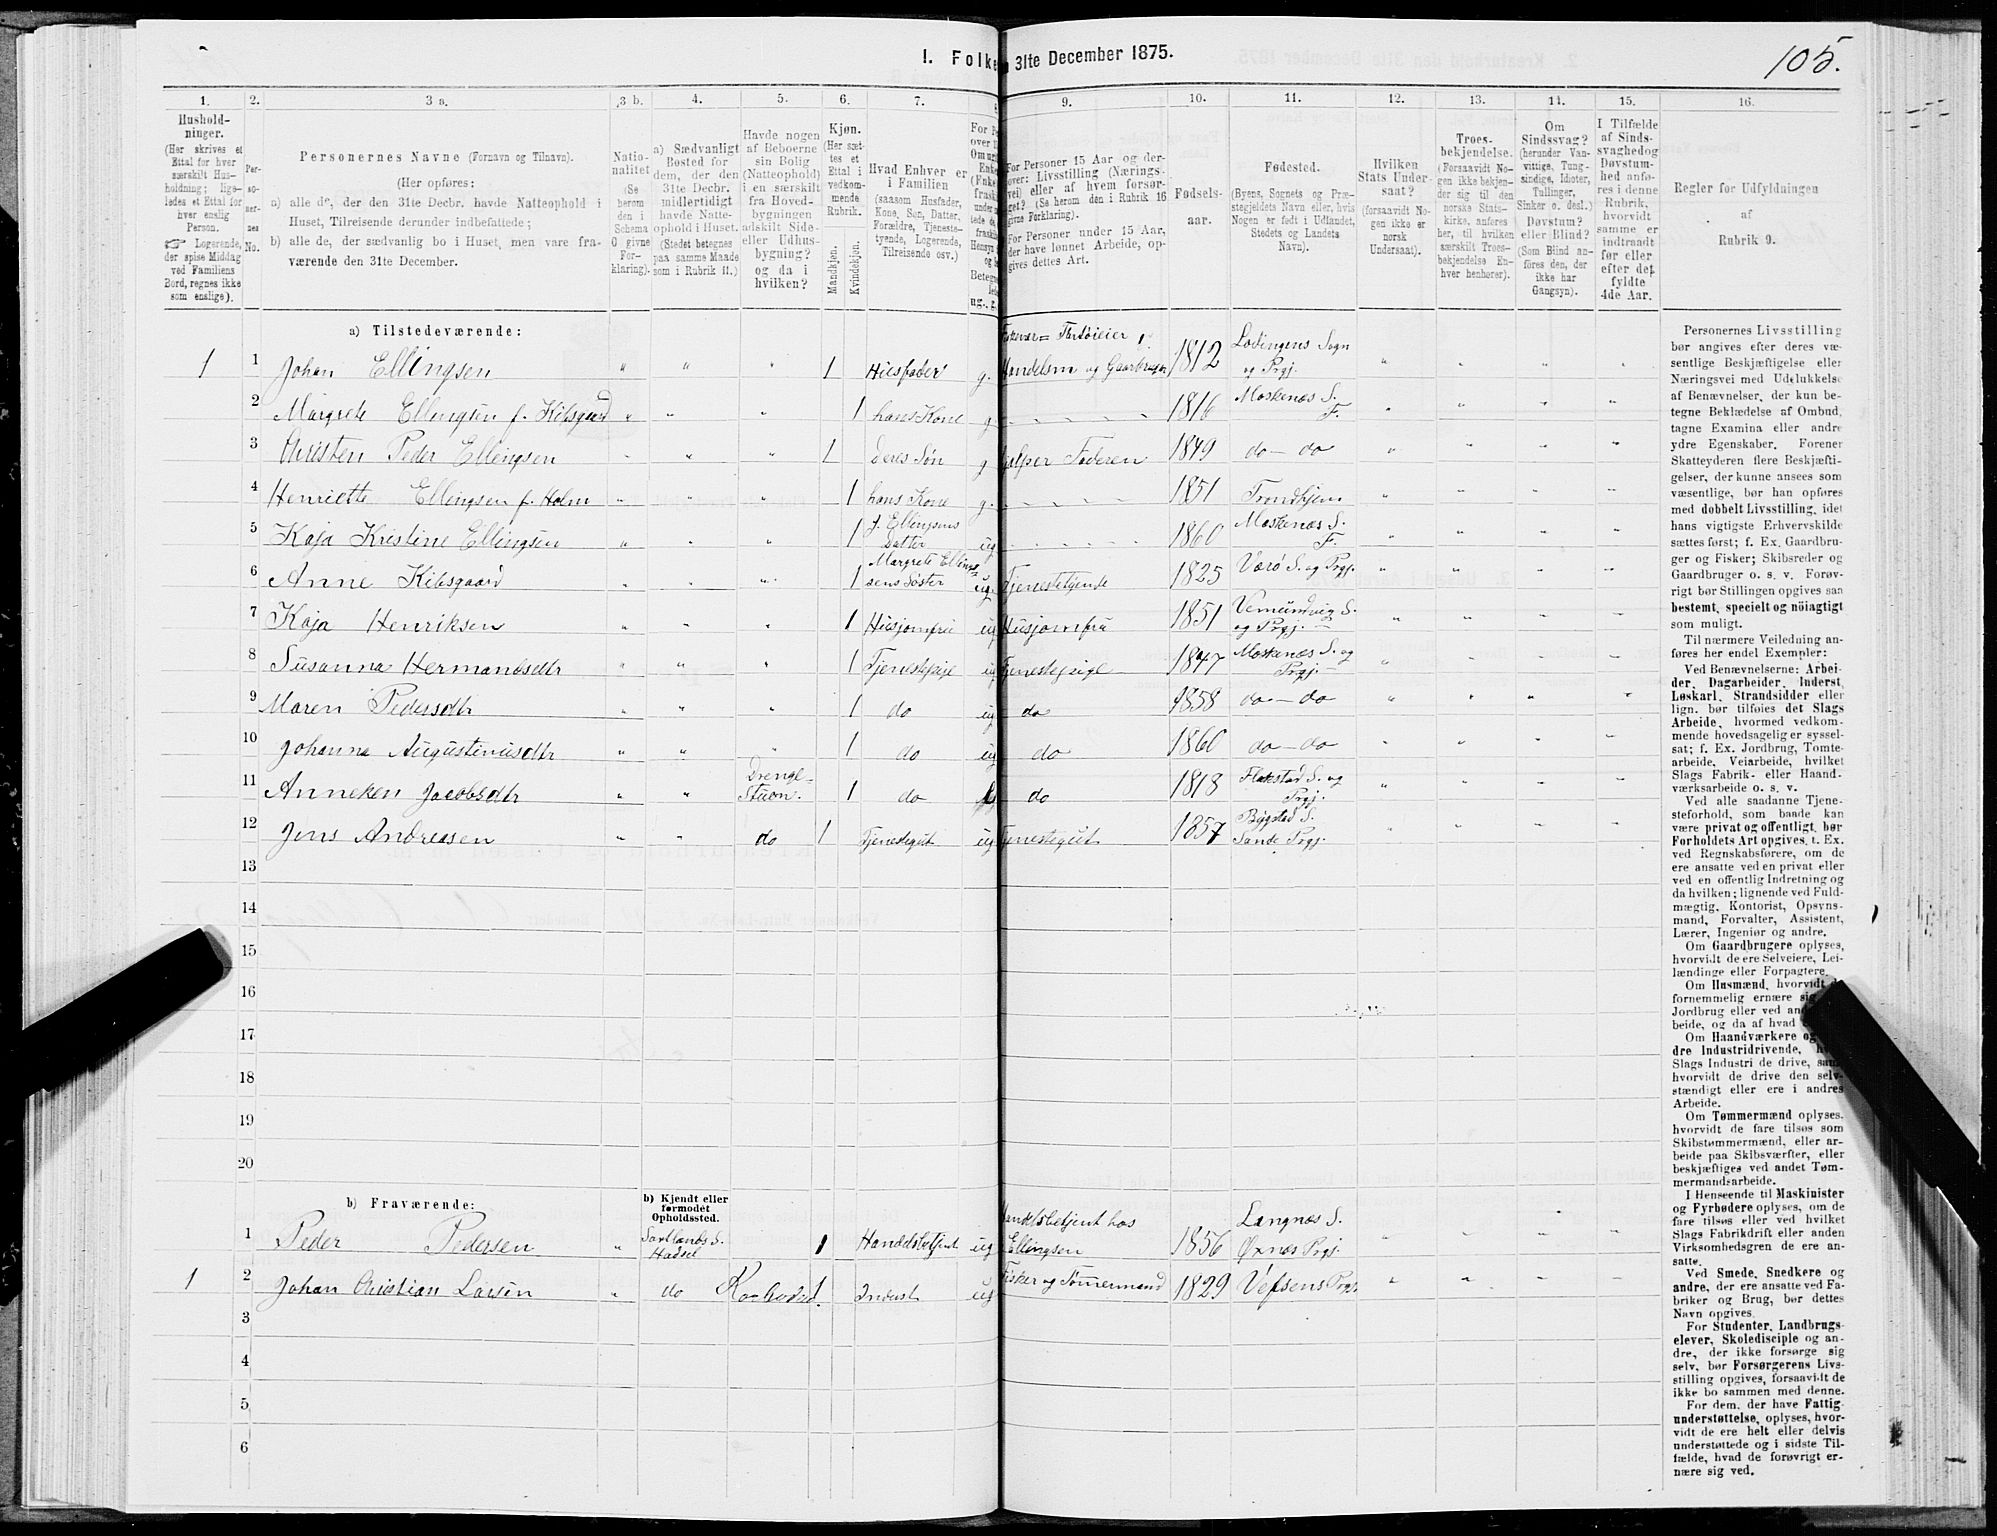 I. Folke 31te December 1875.
105.
1. 2. 3 a. 3 b. 4. 5. 6. 7. 9. 10. 11. 12. 13. 14. 15. 16.
Hushold-
ninger.
(Her skrives et
Ettal for hver
særskilt Hus-
holdning; lige-
ledes et Ettal for
hver enslig
Person.
☞ Logerende,
der spise Middag
ved Familiens
Bord, regnes ikke
som enslige).
Per-
so-
ner-
nes
No.
Personernes Navne (Fornavn og Tilnavn).
(Her opføres:
a) alle de, der den 31te Decbr. havde Natteophold i
Huset, Tilreisende derunder indbefattede;
b) alle de, der sædvanlig bo i Huset, men vare fra-
værende den 31te December.
Natio-
nalitet
(Se
herom
den i
Schema
O givne
For-
klaring).
a) Sædvanligt
Bosted for
dem, der den
31te Decbr.
midlertidigt
havde Natte-
ophold i Huset.
(Stedet betegnes
paa samme Maade
som i Rubrik 11.)
Havde nogen
af Beboerne
sin Bolig
(Natteophold)
i en særskilt
fra Hoved-
bygningen
adskilt Side-
eller Udhus-
bygning?
og da i
hvilken?
Kjøn.
(Her sæt-
tes et
Ettal i
vedkom-
mende
Rubrik.
Mandkjøn.
Kvindekjøn.
Hvad Enhver er
i Familien
(saasom Husfader,
Kone, Søn, Datter,
Forældre, Tjeneste-
tyende, Logerende,
Tilreisende osv.)
For Personer 15 Aar og der-
over: Livsstilling (Nærings-
vei) eller af hvem forsør-
get? (Se herom den i Rubrik 16
givne Forklaring).
For Personer under 15 Aar,
der have lønnet Arbeide, op-
gives dettes Art.
Fødsels-
aar.
Fødested.
(Byens, Sognets og Præ-
stegjeldets Navn eller, hvis
Nogen er født i Udlandet,
Stedets og Landets
Navn).
Hvilken
Stats Under-
saat?
(forsaavidt No-
gen ikke er
norsk
Undersaat).
Troes-
bekjendelse.
(Forsaavidt No-
gen ikke bekjen-
der sig til den
norske Stats-
kirke, anføres
her, til hvilken
særskilt Troes-
bekjendelse En-
hver henhører).
Om
Sindssvag?
(herunder Van-
vittige, Tung-
sindige, Idioter,
Tullinger,
Sinker o. desl.)
Døvstum?
eller Blind?
(Som Blind an-
føres den, der
ikke har
Gangsyn).
I Tilfælde
af Sinds-
svaghedog
Døvstum-
hed anfø-
res i denne
Rubrik,
hvorvidt
samme er
indtraadt
før eller
efter det
fyldte
4de Aar.
Regler for Udfyldningen
af
Rubrik 9.
a) Tilstedeværende:
1 1 Johan Ellingsen " " " 1 Husfader g. Handelsm og Gaardbruger 1812 Lodingens Sogn og Prgj.
2 Margrete Ellingsen f. Kibsgaard " " " 1 hans Kone g 1816 Moskenæs S. F.
3 Christen Peder Ellingsen " " " 1 deres Søn g hjælper Faderen 1849 do - do
4 Henriette Ellingsen f. Holm " " " 1 hans Kone g. 1851 Trondhjem
5 Kaja Kristine Ellingsen " " " 1 J. Ellingsens Datter ug 1860 Moskenæs S. F.
6 Anne Kibsgaard " " " 1 Margrete Ellingsens Søster ug. Tjenestetyende 1825 Værø S. og Prgj.
7 Kaja Henriksen " " " 1 Husjomfru ug Husjomfru 1851 Vemundvig S. og Prgj.
8 Susanna Hermansdtr " " " 1 Tjenestepige ug Tjenestepige 1847 Moskenæs S. og Prgj.
9 Maren Pedersdtr " " " 1 do ug do 1858 do - do
10 Johanna Augustinusdtr " " " 1 do ug do 1860 do - do
11 Anneken Jacobsdtr " " Drengestuen. 1 do do 1818 Flakstad S. og Prgj.
12 Jens Andreasen " " do 1 Tjenestegut ug Tjenestegut 1857 Bygstad S. Sande Prgj.
13
14
15
16
17
18
19
20
b) Fraværende:
b) Kjendt eller
formodet
Opholdssted.
1 Peder Pedersen " Sortlands S. Hadsel 1 Handelsbetjent ug Handelsbetjent hos Ellingsen 1856 Langnæs S. Øxnæs Prgj.
1 2 Johan Christian Larsen " do 1 Inderst ug Fisker og Tømmermand 1829 Vefsens Prgj.
3
4
5
6
Personernes Livsstilling
bør angives efter deres væ-
sentlige Beskjæftigelse eller
Næringsvei med Udelukkelse
af Benævnelser, der kun be-
tegne Beklædelse af Ombud,
tagne Examina eller andre
ydre Egenskaber. Forener
Skatteyderen flere Beskjæfti-
gelser, der kunne ansees som
væsentlige, bør han opføres
med dobbelt Livsstilling, idet
hans vigtigste Erhvervskilde
sættes først; f. Ex. Gaardbru-
ger og Fisker; Skibsreder og
Gaardbruger o. s. v. Forøv-
rigt bør Stillingen opgives saa
bestemt, specielt og nöiagtigt
som muligt.
Til nærmere Veiledning an-
føres her endel Exempler:
Ved Benævnelserne: Arbei-
der, Dagarbeider, Inderst,
Løskarl, Strandsidder eller
lign. bør tilføies det Slags
Arbeide, hvormed vedkom-
mende hovedsagelig er syssel-
sat; f. Ex. Jordbrug, Tomte-
arbeide, Veiarbeide, hvilket
Slags Fabrik- eller Haand-
værksarbeide o. s. v.
Ved alle saadanne Tjene-
steforhold, som baade kan
være privat og offentligt, bør
Forholdets Art opgives, t. Ex.
ved Regnskabsførere, om de
ere ansatte ved en privat eller
ved en offentlig Indretning og
da hvilken; lignende ved Fuld-
mægtig, Kontorist, Opsyns-
mand, Forvalter, Assistent,
Lærer, Ingeniør og andre.
Om Gaardbrugere oplyses,
hvorvidt de ere Selveiere, Lei-
lændinge eller Forpagtere.
Om Husmænd, hvorvidt
fornemmelig ernære sig
Jordbrug eller ved
beide, og da af hvad
Om Haandværkere og
dre Industridrivende,
Slags Industri de drive,
hvorvidt de drive den selv-
stændigt eller ere i andres
Arbeide.
Om Tømmermænd oplyses,
hvorvidt de fare tilsøs som
Skibstømmermænd, eller ar-
beide paa Skibsværfter, eller
beskjæftiges ved andet Tøm-
mermandsarbeide.
I Henseende til Maskinister
og Fyrbødere oplyses, om de
fare tilsøs eller ved hvilket
Slags Fabrikdrift eller anden
Virksomhedsgren de ere an-
satte.
Ved Smede, Snedkere og
andre, der ere ansatte ved Fa-
briker og Brug, bør dettes
Navn opgives.
For Studenter, Landbrugs-
elever, Skoledisciple og an-
dre, der ikke forsørge sig
selv, bør Forsørgerens Livs-
stilling opgives, forsaavidt de
ikke bo sammen med denne.
For dem, der have Fattig-
understøttelse, oplyses, hvor-
vidt de ere helt eller delvis
understøttede og i sidste Til-
fælde, hvad de forøvrigt er-
nære sig ved.